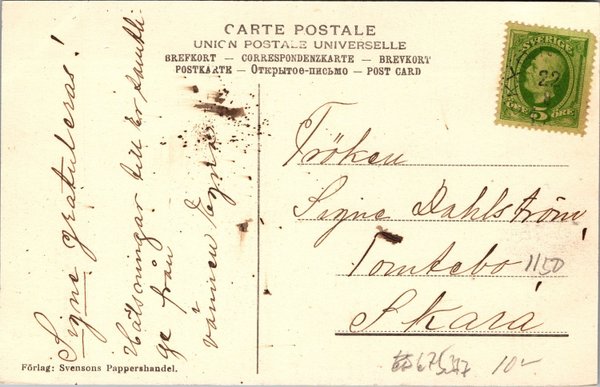 CARTE POSTALE
UNION POSTALE UNIVERSELLE
BREFKORT — CORRESPONDENZKARTE — BREVKORT
POSTKARTE — Открытое-письмо — POST CARD
SVERIGE
22
5
ÖRE
Signe gratuleras!
Hälsningar till er samtli-
ge från
vännen
Fröken
Signe Dahlström,
Tomtebo,
Skara
1150
10-
Förlag: Svensons Pappershandel.